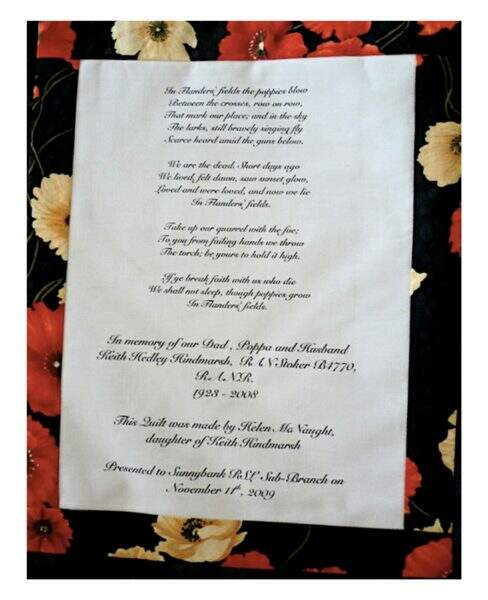 In Flanders' fields the poppies blow
Between the crosses, row on row,
That mark our place; and in the sky
The larks, still bravely singing fly
Scarce heard amid the guns below.
We are the dead. Short days ago
We lived, felt dawn, saw sunset glow,
Loved and were loved, and now we lie
In Flanders' fields.
Take up our quarrel with the foe;
To you from failing hands we throw
The torch; be yours to hold it high.
If ye break faith with us who die
We shall not sleep, though poppies grow
In Flanders' fields.
In memory of our Dad , Poppa and Husband
Keith Hedley Hindmarsh, R.A.N Stoker B4770,
R.A.N.R.
1923 - 2008
This Quilt was made by Helen Mc Naught,
daughter of Keith Hindmarsh
Presented to Sunnybank RSL Sub-Branch on
November 11th, 2009